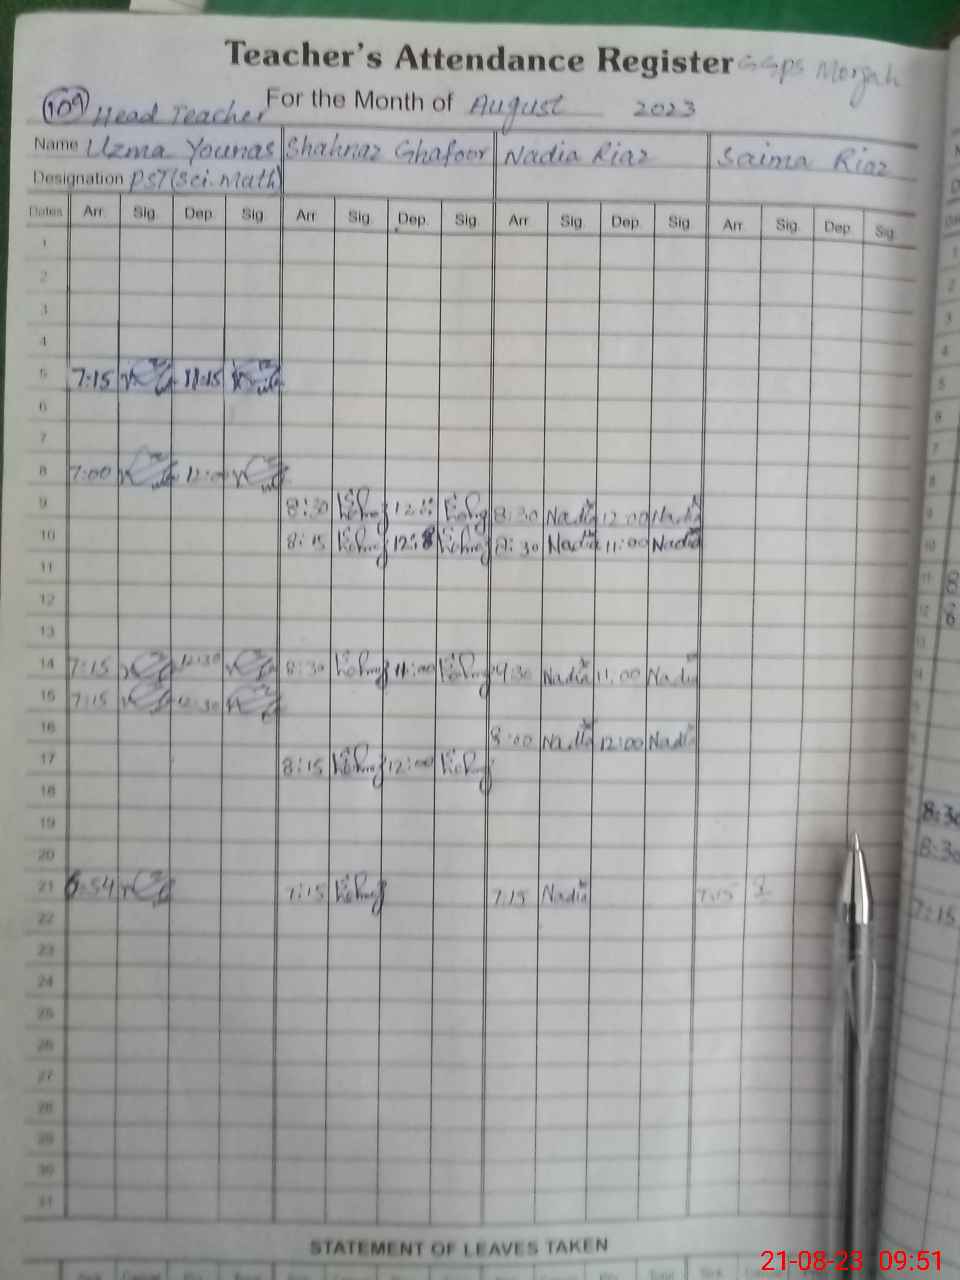 Teacher's Attendance Register GGPS Morgah
For the Month of August 2023
109 Head Teacher
Name Uzma Younas Shahnaz Ghafoor Nadia Riaz Saima Riaz
Designation PST(Sci.Math)
Dates Arr. Sig. Dep. Sig. Arr. Sig. Dep. Sig. Arr. Sig. Dep. Sig. Arr. Sig. Dep. Sig.
1
2
3
4
5 7:15 11:15
6
7
8 7:00 12:00
9 8:30 8:30 Nadia 12:00 Nadia
10 8:15 8:30 Nadia 11:00 Nadia
11
12
13
14 7:15 12:30 8:30 11:00 Nadia 11:00 Nadia
15 7:15 12:30
16 8:00 Nadia 12:00 Nadia
17 8:15 12:00
18
19
20
21 6:54 7:15 7:15 Nadia 7:15
22
23
24
25
26
27
28
29
30
31
STATEMENT OF LEAVES TAKEN
8:30
8:30
7:15
21-08-23 09:51